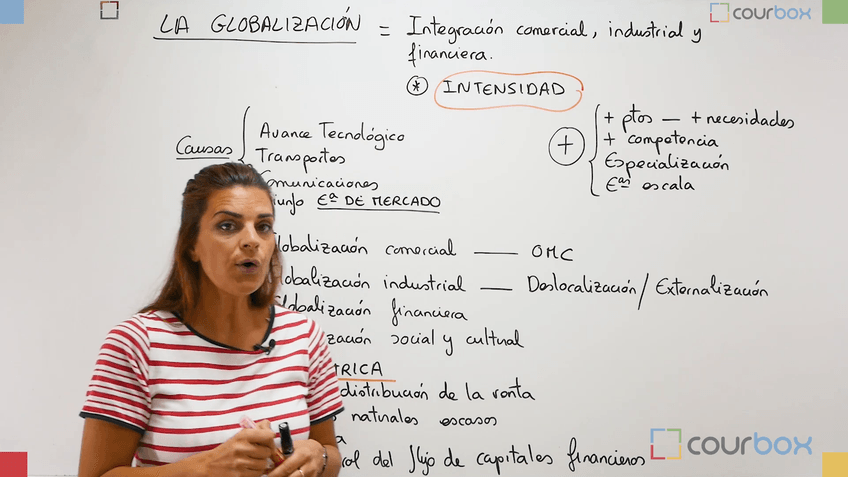 courbox
LA GLOBALIZACIÓN = Integración comercial, industrial y
financiera.
* INTENSIDAD
Causas
Avance Tecnológico
Transportes
Comunicaciones
Eª DE MERCADO
+
+ ptos — + necesidades
+ competencia
Especialización
Eªs escala
Globalización comercial — OMC
Globalización industrial — Deslocalización / Externalización
Globalización financiera
social y cultural
distribución de la renta
naturales escasos
del flujo de capitales financieros
courbox